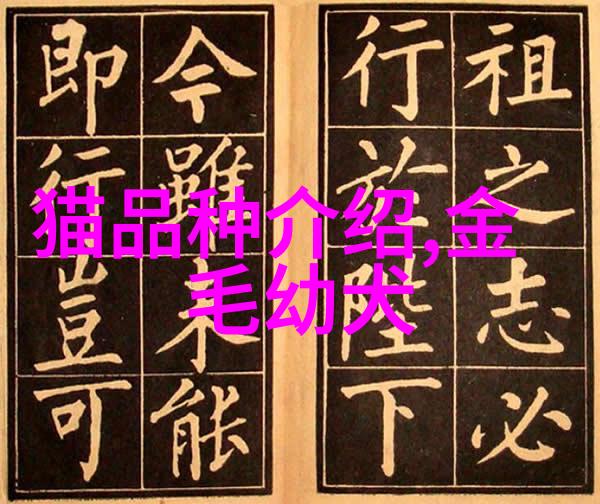 祖之志必
行於陛下
今雖未能
即行豈可
猫品种介绍,金
毛幼犬